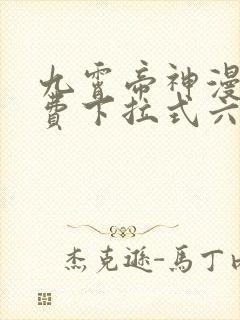 九霄帝神漫
費下拉式六
杰克遜-馬丁